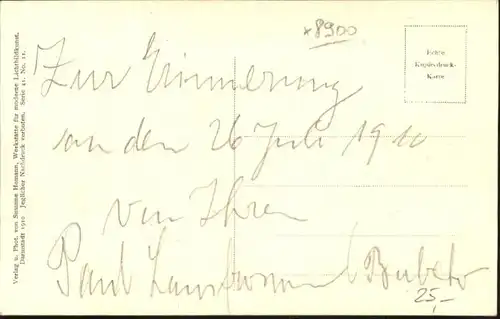 *8900
Echte
Kupferdruck-
Karte
Zur Erinnerung
an den 26 Juli 1910
von Ihren
Paul
25,-
Verlag u. Phot. von Susanne Homann, Werkstätte für moderne Lichtbildkunst.
Darmstadt 1910 Jeglicher Nachdruck verboten. Serie 41. No. 11.